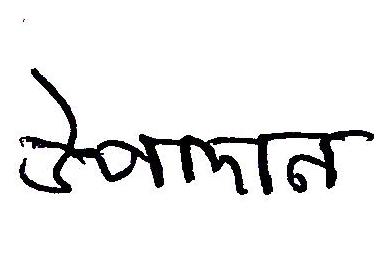 উপাদান